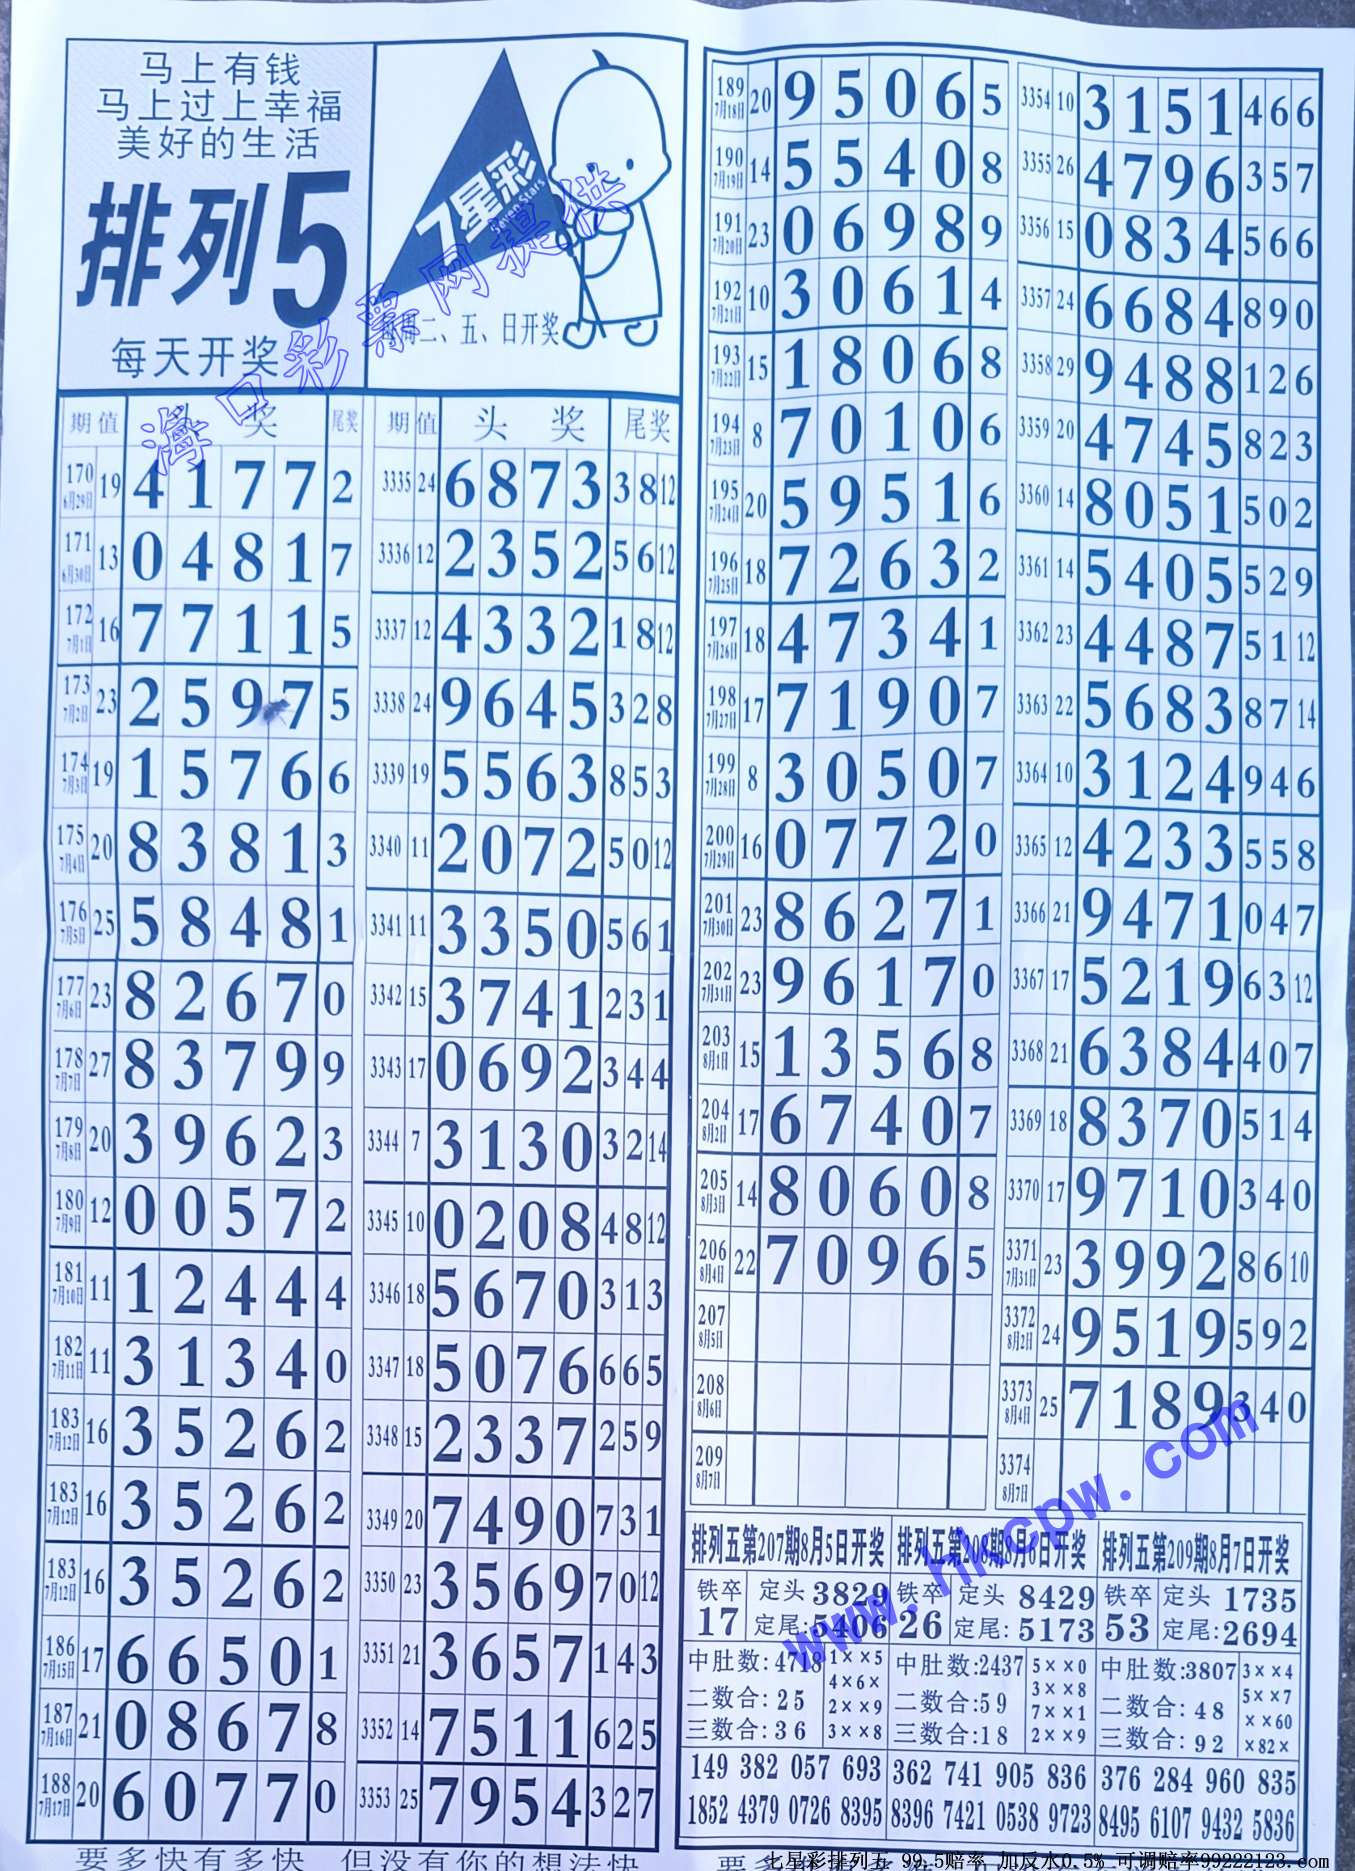 马上有钱
马上过上幸福
美好的生活
排列5
每天开奖
7星彩
Seven Stars
每周二、五、日开奖
海口彩票网提供
期 值 头 奖 尾奖
170 6月29日 19 4 1 7 7 2
171 6月30日 13 0 4 8 1 7
172 7月1日 16 7 7 1 1 5
173 7月2日 23 2 5 9 7 5
174 7月3日 19 1 5 7 6 6
175 7月4日 20 8 3 8 1 3
176 7月5日 25 5 8 4 8 1
177 7月6日 23 8 2 6 7 0
178 7月7日 27 8 3 7 9 9
179 7月8日 20 3 9 6 2 3
180 7月9日 12 0 0 5 7 2
181 7月10日 11 1 2 4 4 4
182 7月11日 11 3 1 3 4 0
183 7月12日 16 3 5 2 6 2
183 7月12日 16 3 5 2 6 2
183 7月12日 16 3 5 2 6 2
186 7月15日 17 6 6 5 0 1
187 7月16日 21 0 8 6 7 8
188 7月17日 20 6 0 7 7 0
期 值 头 奖 尾奖
3335 24 6 8 7 3 3 8 12
3336 12 2 3 5 2 5 6 12
3337 12 4 3 3 2 1 8 12
3338 24 9 6 4 5 3 2 8
3339 19 5 5 6 3 8 5 3
3340 11 2 0 7 2 5 0 12
3341 11 3 3 5 0 5 6 1
3342 15 3 7 4 1 2 3 1
3343 17 0 6 9 2 3 4 4
3344 7 3 1 3 0 3 2 14
3345 10 0 2 0 8 4 8 12
3346 18 5 6 7 0 3 1 3
3347 18 5 0 7 6 6 6 5
3348 15 2 3 3 7 2 5 9
3349 20 7 4 9 0 7 3 1
3350 23 3 5 6 9 7 0 12
3351 21 3 6 5 7 1 4 3
3352 14 7 5 1 1 6 2 5
3353 25 7 9 5 4 3 2 7
189 7月18日 20 9 5 0 6 5
190 7月19日 14 5 5 4 0 8
191 7月20日 23 0 6 9 8 9
192 7月21日 10 3 0 6 1 4
193 7月22日 15 1 8 0 6 8
194 7月23日 8 7 0 1 0 6
195 7月24日 20 5 9 5 1 6
196 7月25日 18 7 2 6 3 2
197 7月26日 18 4 7 3 4 1
198 7月27日 17 7 1 9 0 7
199 7月28日 8 3 0 5 0 7
200 7月29日 16 0 7 7 2 0
201 7月30日 23 8 6 2 7 1
202 7月31日 23 9 6 1 7 0
203 8月1日 15 1 3 5 6 8
204 8月2日 17 6 7 4 0 7
205 8月3日 14 8 0 6 0 8
206 8月4日 22 7 0 9 6 5
207 8月5日
208 8月6日
209 8月7日
3354 10 3 1 5 1 4 6 6
3355 26 4 7 9 6 3 5 7
3356 15 0 8 3 4 5 6 6
3357 24 6 6 8 4 8 9 0
3358 29 9 4 8 8 1 2 6
3359 20 4 7 4 5 8 2 3
3360 14 8 0 5 1 5 0 2
3361 14 5 4 0 5 5 2 9
3362 23 4 4 8 7 5 1 12
3363 22 5 6 8 3 8 7 14
3364 10 3 1 2 4 9 4 6
3365 12 4 2 3 3 5 5 8
3366 21 9 4 7 1 0 4 7
3367 17 5 2 1 9 6 3 12
3368 21 6 3 8 4 4 0 7
3369 18 8 3 7 0 5 1 4
3370 17 9 7 1 0 3 4 0
3371 7月31日 23 3 9 9 2 8 6 10
3372 8月2日 24 9 5 1 9 5 9 2
3373 8月4日 25 7 1 8 9 3 4 0
3374 8月7日
排列五第207期8月5日开奖
铁卒 17 定头 3829
定尾:5406
中肚数:4718
二数合:25
三数合:36
1××5
4×6×
2××9
3××8
149 382 057 693
1852 4379 0726 8395
排列五第208期8月6日开奖
铁卒 26 定头 8429
定尾:5173
中肚数:2437
二数合:59
三数合:18
5××0
3××8
7××1
2××9
362 741 905 836
8396 7421 0538 9723
排列五第209期8月7日开奖
铁卒 53 定头 1735
定尾:2694
中肚数:3807
二数合:48
三数合:92
3××4
5××7
××60
×82×
376 284 960 835
8495 6107 9432 5836
www.hkcpw.com
要多快有多快 但没有你的想法快
七星彩排列五 99.5赔率 加反水0.5% 可调赔率99222123.com